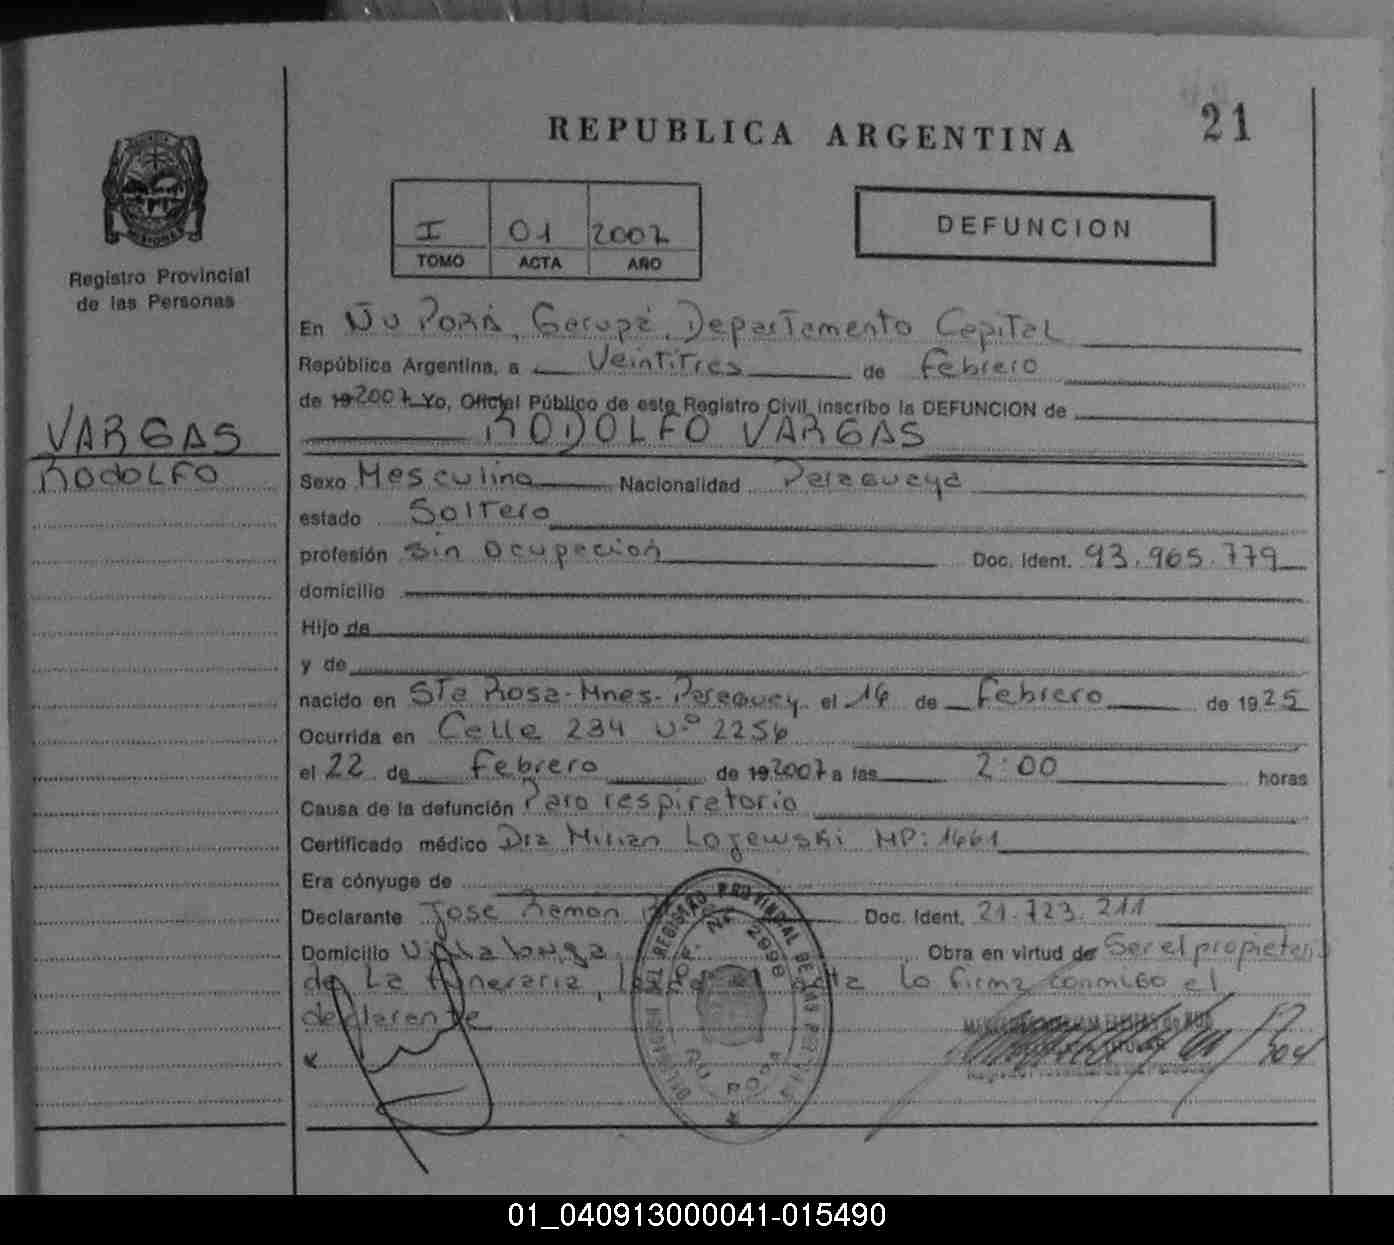 REPUBLICA ARGENTINA
21
Registro Provincial
de las Personas
I 01 2007
TOMO ACTA AÑO
DEFUNCION
En Ñu Porá, Garupá, Departamento Capital
República Argentina, a Veintitres de Febrero
de 19 2007 Yo, Oficial Público de este Registro Civil, inscribo la DEFUNCION de
VARGAS
RODOLFO VARGAS
RODOLFO
Sexo Masculino Nacionalidad Paraguaya
estado Soltero
profesión Sin Ocupación Doc. Ident. 93.965.779
domicilio
Hijo de
y de
nacido en Sta Rosa-Mnes-Paraguay el 14 de Febrero de 1925
Ocurrida en Calle 234 Nº 2256
el 22 de Febrero de 19 2007 a las 2:00 horas
Causa de la defunción Paro respiratorio
Certificado médico Dra Mirian Lojewski MP: 1461
Era cónyuge de
Declarante Jose Ramón Doc. Ident. 21.723.211
Domicilio Villalonga Obra en virtud de Ser el propietario
de La funeraria, acta Lo firma conmigo el
declarante
DELEGACION DEL REGISTRO PROVINCIAL DE LAS PERSONAS
Nº 2998
ÑU PORA
01_040913000041-015490